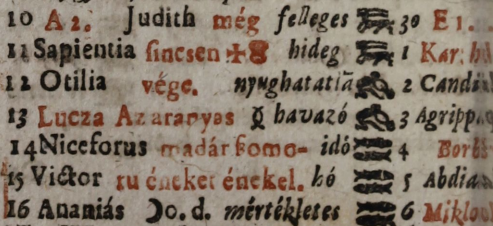 10 A 2. Judith még felleges 30 E 1.
11 Sapientia sincsen hideg 1 Kar:
12 Otilia vége. nyughatatlā 2 Candi
13 Lucza Az aranyas havazó 3 Agripp
14 Niceforus madár szomo- idő 4
15 Victor ru éneket énekel. hó 5 Abdia
16 Ananiás 0. d. mértékletes 6 Miklo